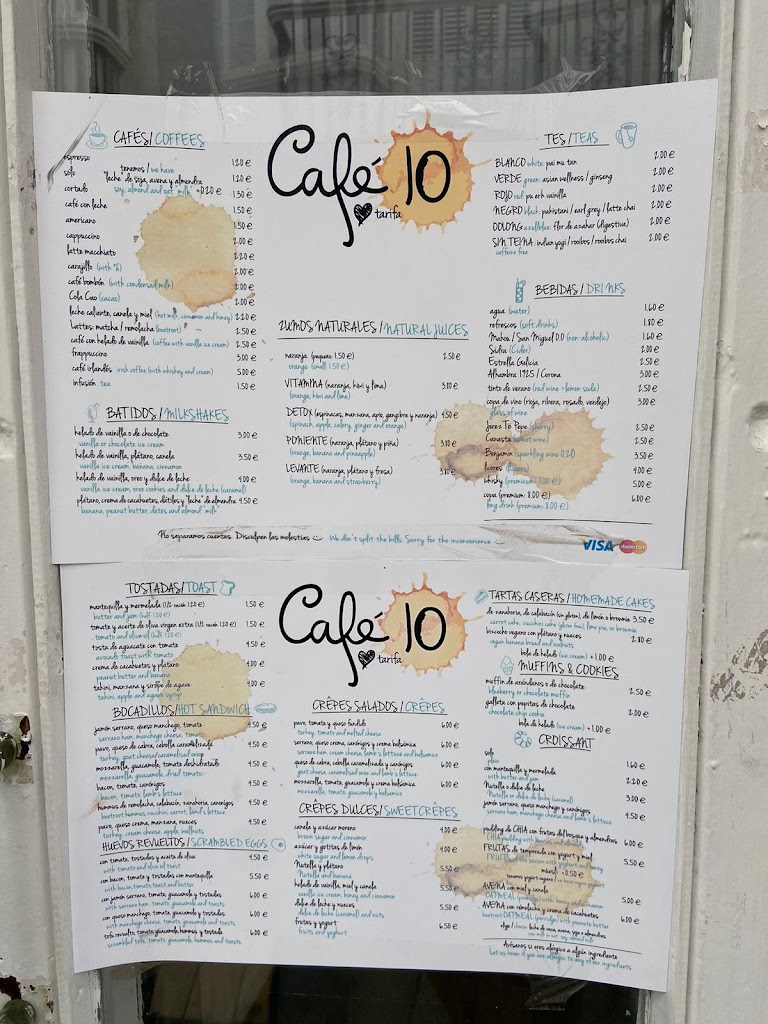 CAFÉS/COFFEES
espresso 1.20 €
solo 1.20 €
tenemos/we have
"leche" de soja, avena y almendra
soy, almond and oat "milk" +0.20 €
cortado 1.30 €
café con leche 1.50 €
americano 1.50 €
cappuccino 2.00 €
latte macchiato 2.20 €
carajillo (with %) 2.00 €
café bombón (with condensed milk) 2.00 €
Cola Cao (cacao) 2.00 €
leche caliente, canela y miel (hot milk, cinnamon and honey) 2.20 €
Lattes: matcha / remolacha (beetroot) 2.50 €
café con helado de vainilla (coffee with vanilla ice cream) 2.50 €
frappuccino 3.00 €
café irlandés irish coffee (with whiskey and cream) 5.00 €
infusión tea 1.50 €
BATIDOS/MILKSHAKES
helado de vainilla o de chocolate 3.00 €
vanilla or chocolate ice cream
helado de vainilla, plátano, canela 3.50 €
vanilla ice cream, banana, cinnamon
helado de vainilla, oreo y dulce de leche 4.00 €
vanilla ice cream, oreo cookies and dulce de leche (caramel)
plátano, crema de cacahuetes, dátiles y "leche" de almendra 4.50 €
banana, peanut butter, dates and almond "milk"
Café 10
tarifa
ZUMOS NATURALES/NATURAL JUICES
naranja (pequeno: 1.50 €) 2.50 €
orange (small: 1.50 €)
VITAMINA (naranja, kiwi y lima) 3.80 €
(orange, kiwi and lime)
DETOX (espinacas, manzana, apio, gengibre y naranja) 4.50 €
(spinach, apple, celery, ginger and orange)
PONIENTE (naranja, plátano y piña) 3.80 €
(orange, banana and pineapple)
LEVANTE (naranja, plátano y fresa) 3.80 €
(orange, banana and strawberry)
TES/TEAS
BLANCO white: pai mu tan 2.00 €
VERDE green: asian wellness / ginseng 2.00 €
ROJO red: pu erh vainilla 2.00 €
NEGRO black: pakistani / earl grey / latte chai 2.00 €
OOLONG azul/blue: flor de azahar (digestiva) 2.00 €
SIN TEINA: indian yogi / rooibos / rooibos chai 2.00 €
caffeine free
BEBIDAS/DRINKS
agua (water) 1.60 €
refrescos (soft drinks) 1.80 €
Mahou / San Miguel 0.0 (non-alcoholic) 1.60 €
Sidra (Cider) 2.00 €
Estrella Galicia 2.50 €
Alhambra 1925 / Corona 3.00 €
tinto de verano (red wine + lemon soda) 2.50 €
copa de vino (rioja, ribera, rosado, verdejo) 3.00 €
glass of wine
Jerez Tio Pepe (sherry) 2.50 €
Canasta (sweet wine) 2.50 €
Benjamin (sparkling wine 0,2l) 3.50 €
licores (liquors) 4.00 €
whisky (premium: 7.00 €) 5.00 €
copa (premium: 8.00 €) 6.00 €
long drink (premium: 8.00 €)
No separamos cuentas. Disculpen las molestias We don't split the bills. Sorry for the inconvenience
VISA MasterCard
TOSTADAS/TOAST
mantequilla y mermelada (1/2 racion 1.20 €) 1.50 €
butter and jam (half: 1.20 €)
tomate y aceite de oliva virgen extra (1/2 racion 1.20 €) 1.50 €
tomato and olive oil (half: 1.20 €)
tosta de aguacate con tomate 4.50 €
avocado toast with tomato
crema de cacahuetes y plátano 4.00 €
peanut butter and banana
tahini, manzana y sirope de agave 4.00 €
tahini, apple and agave syrup
BOCADILLOS/HOT SANDWICH
jamón serrano, queso manchego, tomate 4.50 €
serrano ham, manchego cheese, tomato
pavo, queso de cabra, cebolla caramelizada 4.50 €
turkey, goat cheese, caramelised onion
mozzarella, guacamole, tomate deshidratado 4.50 €
mozzarella, guacamole, dried tomato
bacon, tomate, canónigos 4.50 €
bacon, tomato, lamb's lettuce
hummus de remolacha, calabacín, zanahoria, canónigos 4.50 €
beetroot hummus, zucchini, carrot, lamb's lettuce
pavo, queso crema, manzana, nueces 4.50 €
turkey, cream cheese, apple, wallnuts
HUEVOS REVUELTOS/SCRAMBLED EGGS
con tomate, tostadas y aceite de oliva 4.50 €
with tomato and olive oil toast
con bacon, tomate y tostadas con mantequilla 5.50 €
with bacon, tomato toast and butter
con jamón serrano, tomate, guacamole y tostadas 6.00 €
with serrano ham, tomato, guacamole and toasts
con queso manchego, tomate, guacamole y tostadas 6.00 €
with manchego cheese, tomato, guacamole and toasts
tofu revuelto, tomate, guacamole, hummus y tostada 6.00 €
scrambled tofu, tomato, guacamole, hummus and toasts
Café 10
tarifa
CRÊPES SALADOS/CRÊPES
pavo, tomate y queso fundido 6.00 €
turkey, tomato and melted cheese
serrano, queso crema, canónigos y crema balsámica 6.00 €
serrano ham, cream cheese, lamb's lettuce and balsamico
queso de cabra, cebolla caramelizada y canónigos 6.00 €
goat cheese, caramelized onion and lamb's lettuce
mozzarella, tomate, guacamole y crema balsamico 6.00 €
mozzarella, tomato, guacamole y balsamico
CRÊPES DULCES/SWEET CRÊPES
canela y azúcar moreno 4.00 €
brown sugar and cinnamon
azúcar y gotitas de limón 4.00 €
white sugar and lemon drops
Nutella y plátano 5.50 €
Nutella and banana
helado de vainilla, miel y canela 5.50 €
vanilla ice cream, honey and cinnamon
dulce de leche y nueces 5.50 €
dulce de leche (caramel) and nuts
frutas y yogurt 6.50 €
fruits and yoghurt
TARTAS CASERAS/HOMEMADE CAKES
de zanahoria, de calabacín (sin gluten), de limón o brownie 3.50 €
carrot cake, zucchini cake (gluten free), lime pie, or brownie
bizcocho vegano con plátano y nueces 2.80 €
vegan banana bread and walnuts
bola de helado (ice cream) +1.00 €
MUFFINS & COOKIES
muffin de arándanos o de chocolate 2.50 €
blueberry or chocolate muffin
galleta con pepitas de chocolate 2.00 €
chocolate chip cookie
bola de helado (ice cream) +1.00 €
CROISSANT
solo 1.60 €
plain
con mantequilla y mermelada 2.20 €
with butter and jam
Nutella o dulce de leche 3.00 €
Nutella or dulce de leche (caramel)
jamón serrano, queso manchego y canónigos 4.50 €
serrano ham, manchego cheese and lamb's lettuce
pudding de CHIA con frutas del bosque y almendras 6.00 €
CHIA pudding with
FRUTAS de temporada con yogurt y miel 5.50 €
FRUITS of the season with yogurt and honey
muesli +0.50 €
tenemos yogurt vegano / we have vegan yogurt
AVENA con miel y canela 5.00 €
OATMEAL (porridge) with honey and cinnamon
AVENA con remolacha y crema de cacahuetes 6.00 €
beetroot OATMEAL (porridge) with peanuts butter
elige / choose: leche de vaca, avena, soja o almendras
cow milk or oat, soy, almond milk
Avísanos si eres alérgico a algún ingrediente
Let us know if you are allergic to any of our ingredients